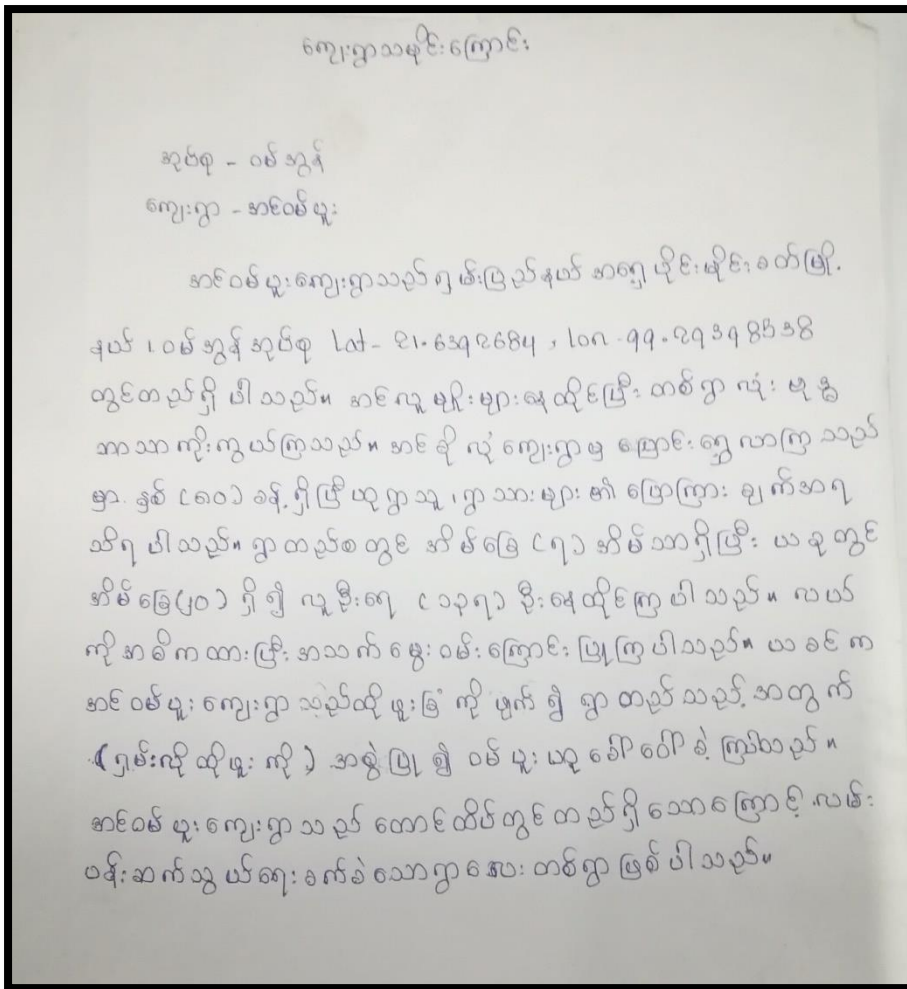 ကျေးရွာသမိုင်းကြောင်း
အုပ်စု - ဝမ်အွန်
ကျေးရွာ - အင်ဝမ်ပူး
အင်ဝမ်ပူးကျေးရွာသည် ရှမ်းပြည်နယ် အရှေ့ပိုင်း မိုင်းခတ်မြို့
နယ် ၊ ဝမ်အွန်အုပ်စု Lat - 21.6392684 , Lon - 99.29398538
တွင်တည်ရှိ ပါသည်။ အင်လူမျိုးများနေထိုင်ပြီး တစ်ရွာလုံး ဗုဒ္ဓ
ဘာသာကိုးကွယ်ကြသည်။ အင် ကျေးရွာမှ ပြောင်းရွှေ့လာကြသည်
မှာ နှစ် (၈၀) ခန့် ရှိပြီဟု ရွာသူ ၊ ရွာသားများ ၏ ပြောကြား ချက်အရ
သိရ ပါသည်။ ရွာတည်စတွင် အိမ်ခြေ (၇) အိမ်သာရှိပြီး ယခုတွင်
အိမ်ခြေ(၂၀) ရှိ ၍ လူဦးရေ (၁၃၇) ဦးနေထိုင်ကြ ပါသည်။ လယ်
ကို အဓိကထားပြီး အသက်မွေးဝမ်းကြောင်း ပြုကြပါသည်။ ယခင်က
အင်ဝမ်ပူး ကျေးရွာသည် ထိုပူးခြံ ကို ဖျက် ၍ ရွာတည်သည့် အတွက်
(ရှမ်းလို ထိုပူး ကို ) အစွဲပြု ၍ ဝမ်ပူး ဟူ ခေါ်ဝေါ်ခဲ့ ကြပါသည်။
အင်ဝမ်ပူးကျေးရွာသည် တောင်ထိပ်တွင် တည်ရှိသောကြောင့် လမ်း
ပန်းဆက်သွယ်ရေး ခက်ခဲသောရွာလေး တစ်ရွာ ဖြစ်ပါသည်။